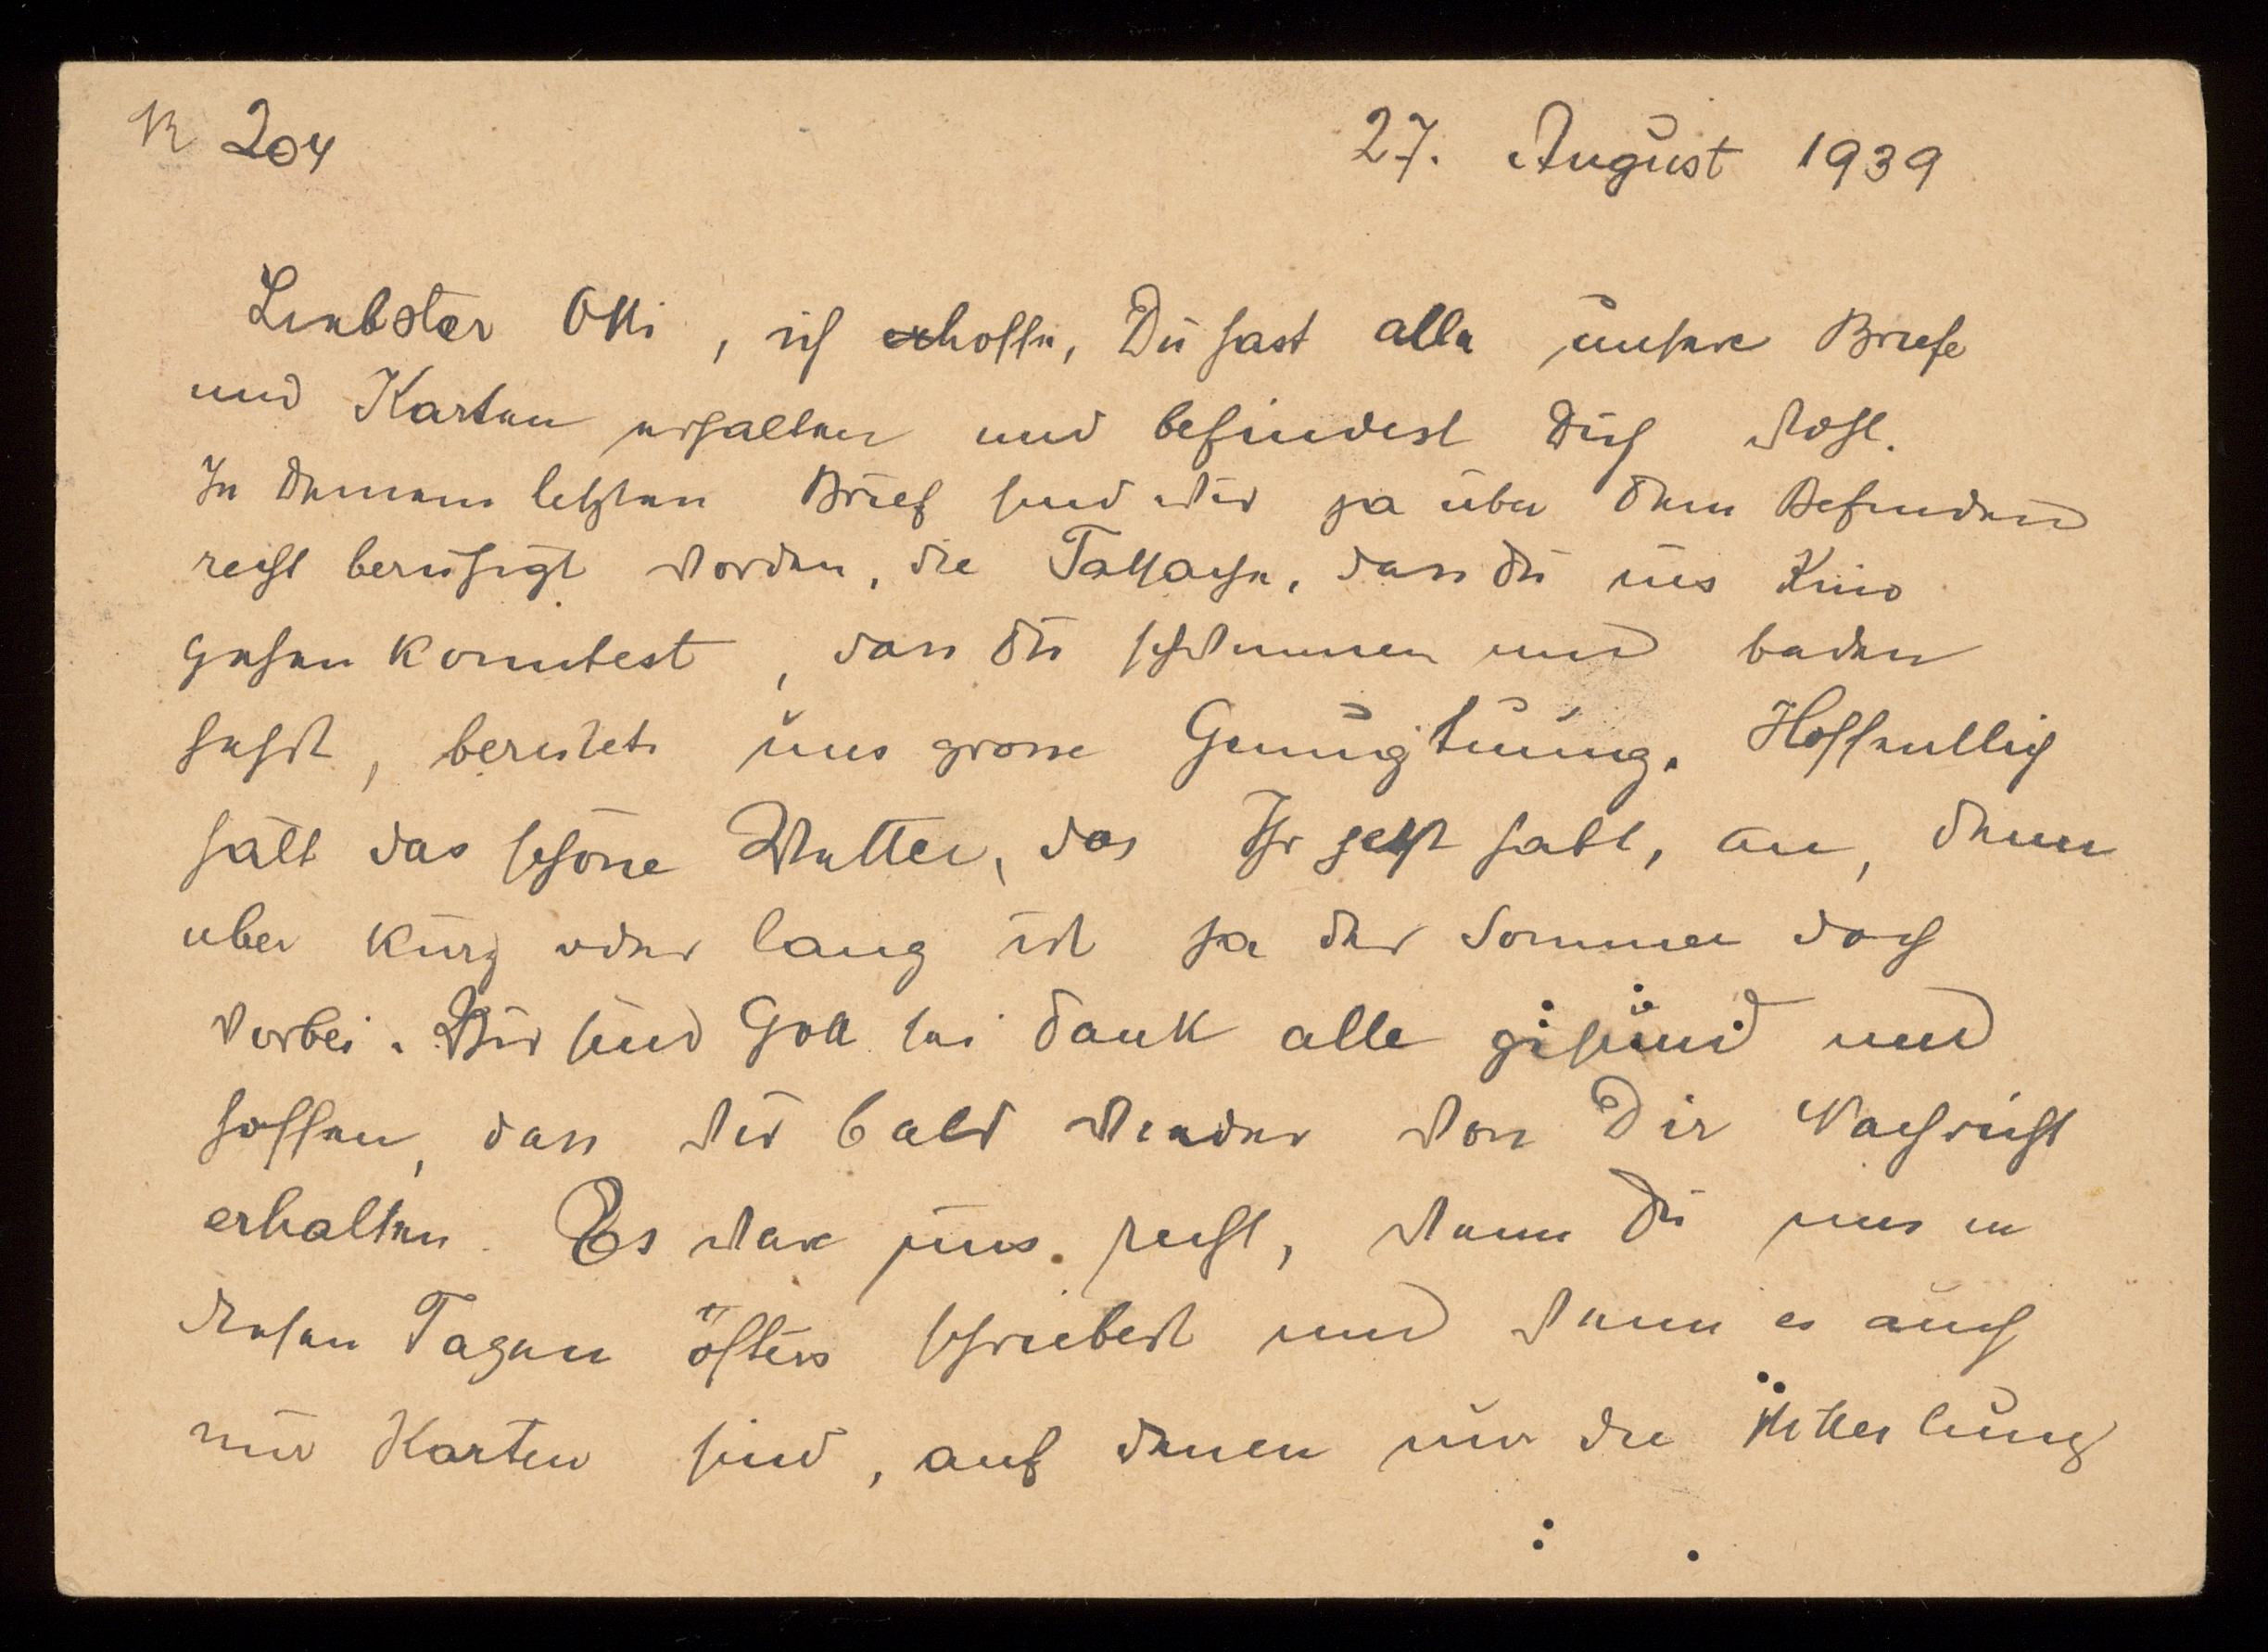 K 204 27. August 1939
Liebster Otti, ich erhoffe, Du hast alle unsere Briefe
und Karten erhalten und befindest Dich wohl.
In Deinem letzten Brief sind wir ja über Dein Befinden
recht beruhigt worden, die Tatsache, dass Du ins Kino
gehen konntest, dass Du schwimmen und baden
gehst, bereitete uns grosse Genugtuung. Hoffentlich
hält das schöne Wetter, das Ihr jetzt habt, an, denn
uber kurz oder lang ist ja der Sommer doch
vorbei. Wir sind Gott sei Dank alle gesund und
hoffen, dass wir bald wieder von Dir Nachricht
erhalten. Es wäre uns recht, wenn Du uns in
diesen Tagen öfters schriebest und wenn es auch
nur Karten sind, auf denen nur die Mitteilung